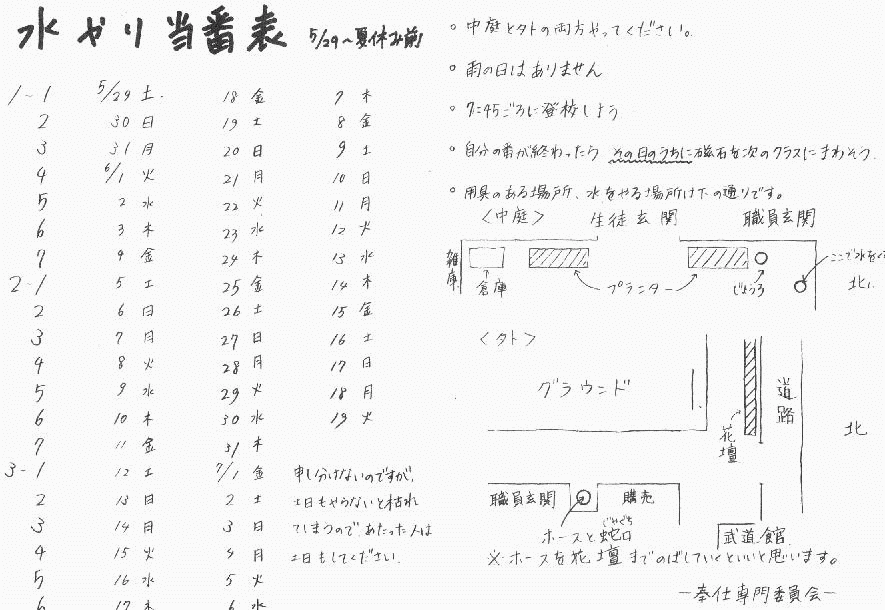 水やり当番表 5/29～夏休み前
1-1 5/29 土 18 金 7 木
2 30 日 19 土 8 金
3 31 月 20 日 9 土
4 6/1 火 21 月 10 日
5 2 水 22 火 11 月
6 3 木 23 水 12 火
7 4 金 24 木 13 水
2-1 5 土 25 金 14 木
2 6 日 26 土 15 金
3 7 月 27 日 16 土
4 8 火 28 月 17 日
5 9 水 29 火 18 月
6 10 木 30 水 19 火
7 11 金 31 木
3-1 12 土 7/1 金
2 13 日 2 土
3 14 月 3 日
4 15 火 4 月
5 16 水 5 火
6 17 木 6 水
申し分けないのですが、
土日もやらないと枯れ
てしまうので、あたった人は
土日もしてください。
○中庭と外の両方やってください。
○雨の日はありません
○7:45ごろに登校しよう
○自分の番が終わったら その日のうちに磁石を次のクラスにまわそう.
○用具のある場所、水をやる場所は下の通りです。
<中庭> 生徒玄関 職員玄関
倉庫
プランター
じょうろ
ここで水をく
北
<外>
グラウンド
花壇
道路
北
職員玄関
購売
ホースと蛇口
じゃぐち
武道館
※ホースを花壇までのばしていくといいと思います。
－奉仕専門委員会－